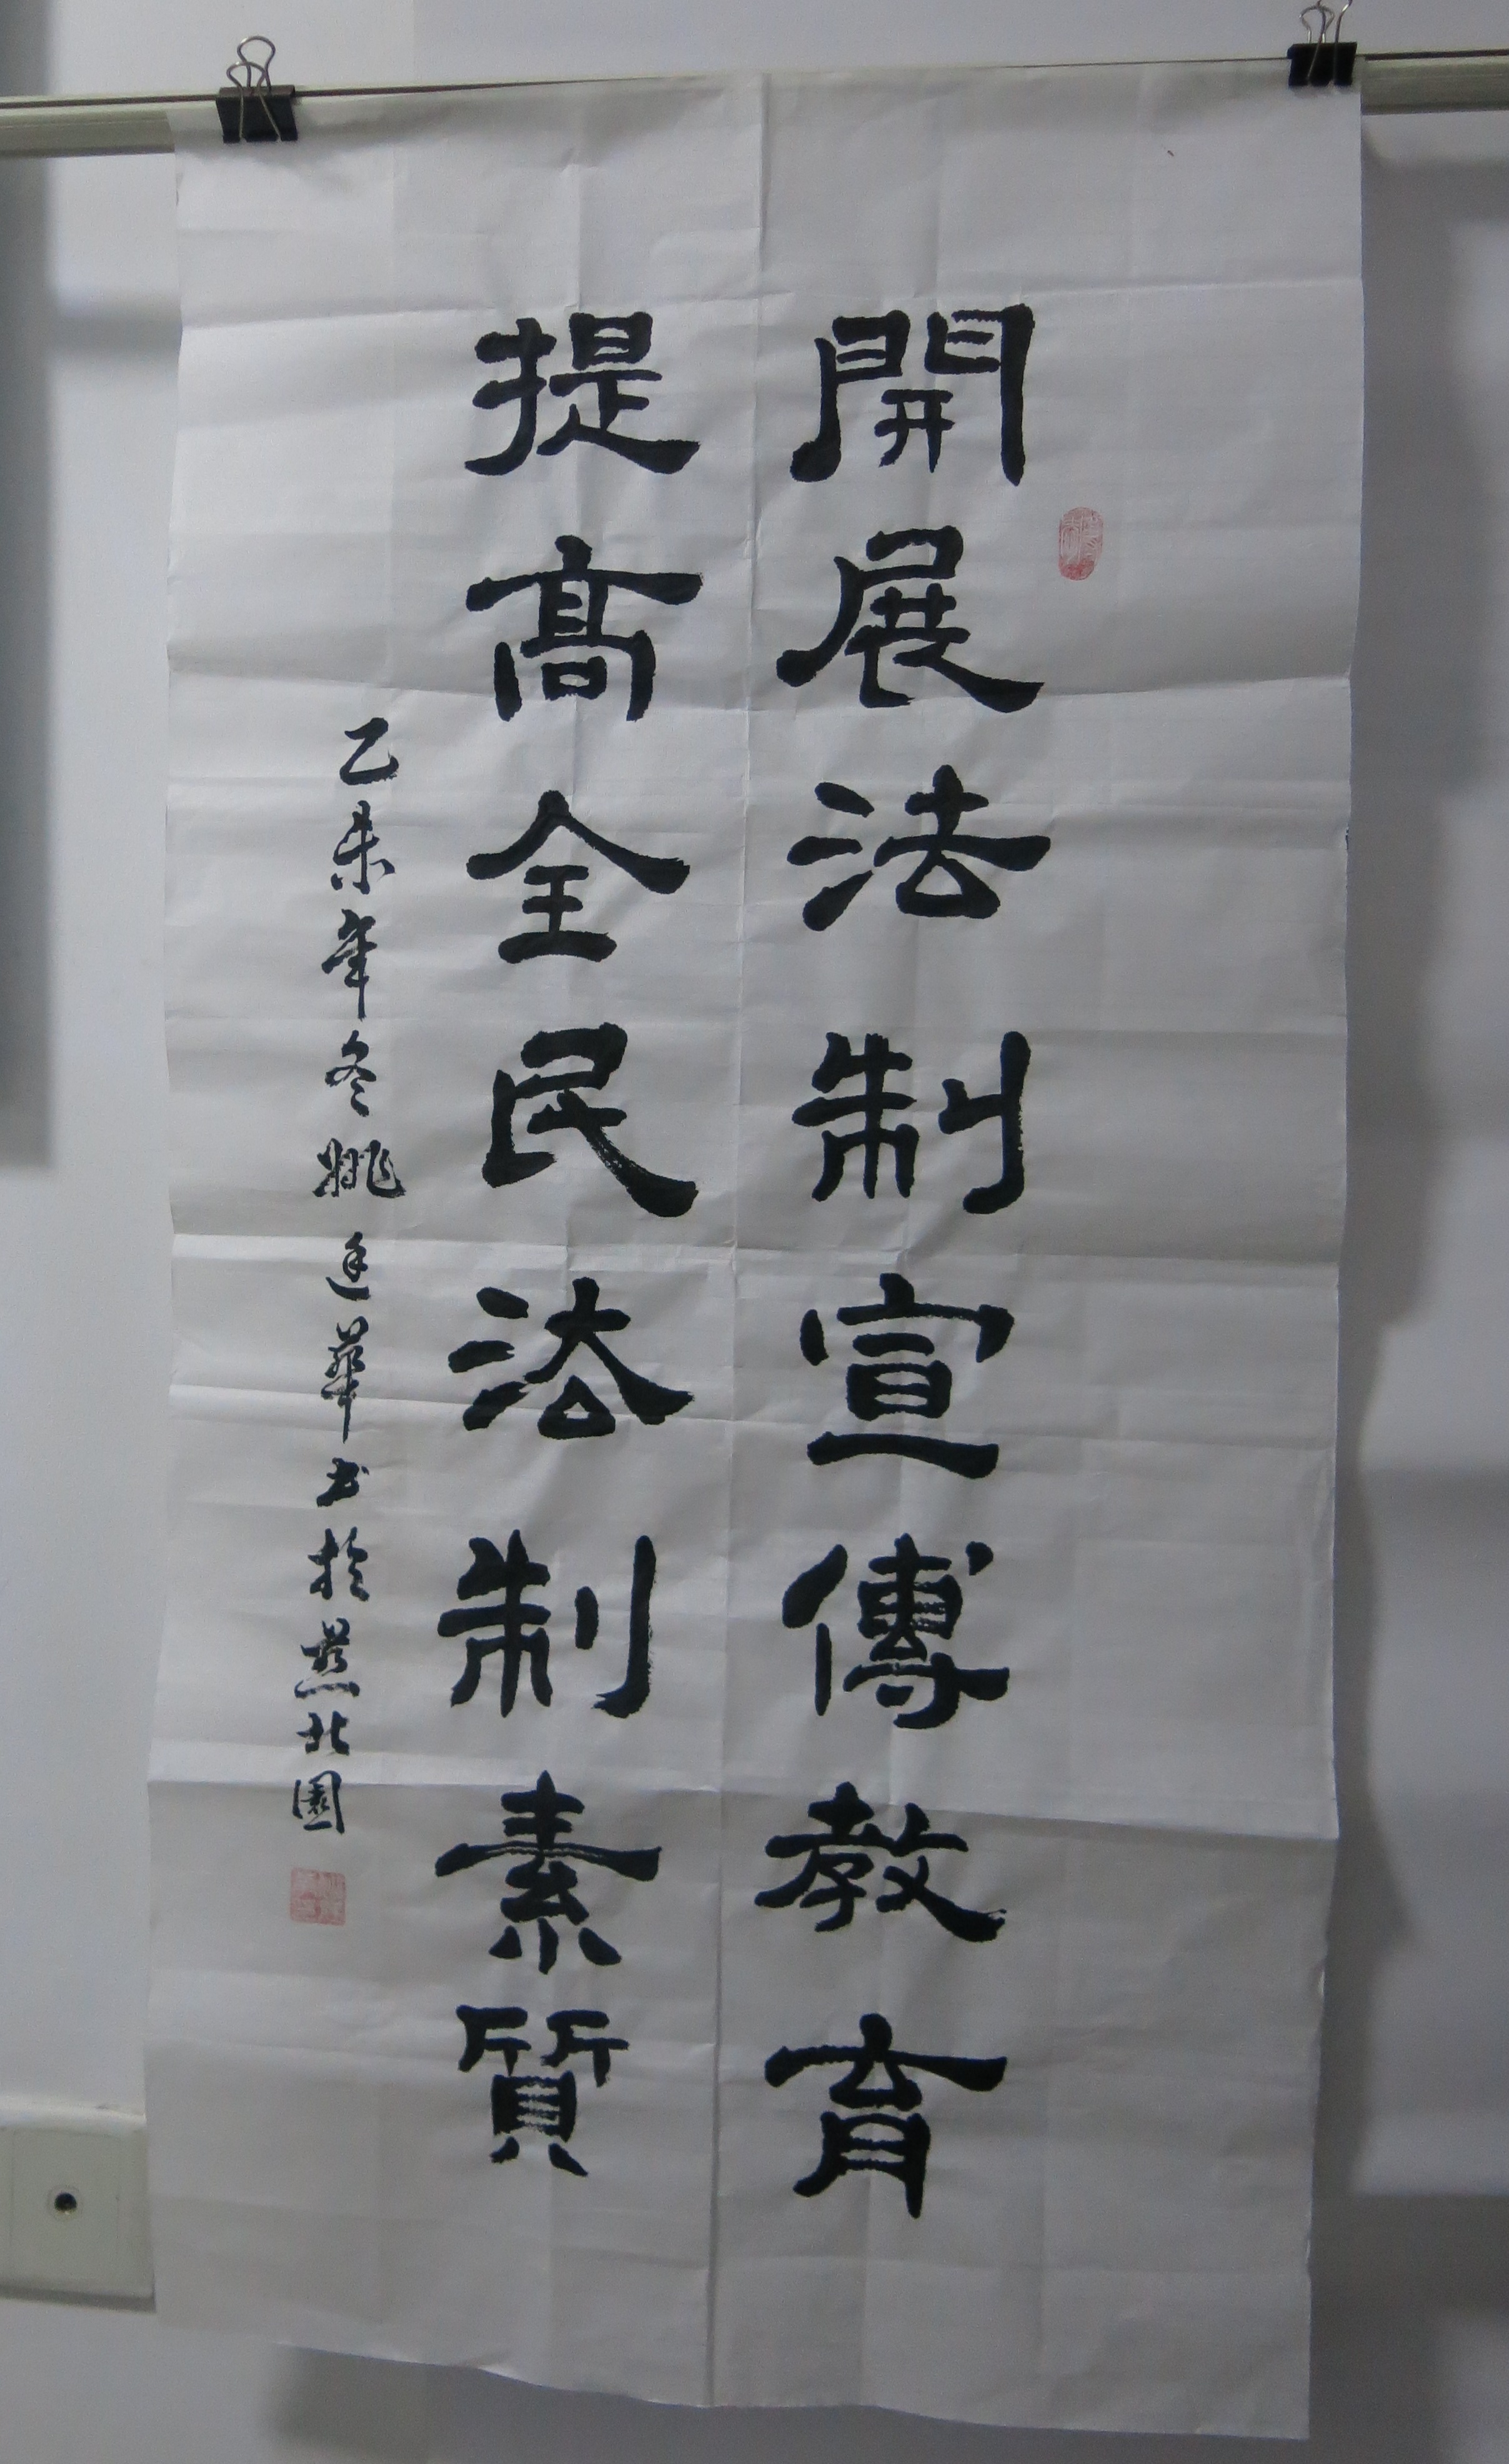 開展法制宣傳教育
提高全民法制素質
乙未年冬姚廷華书於燕北園